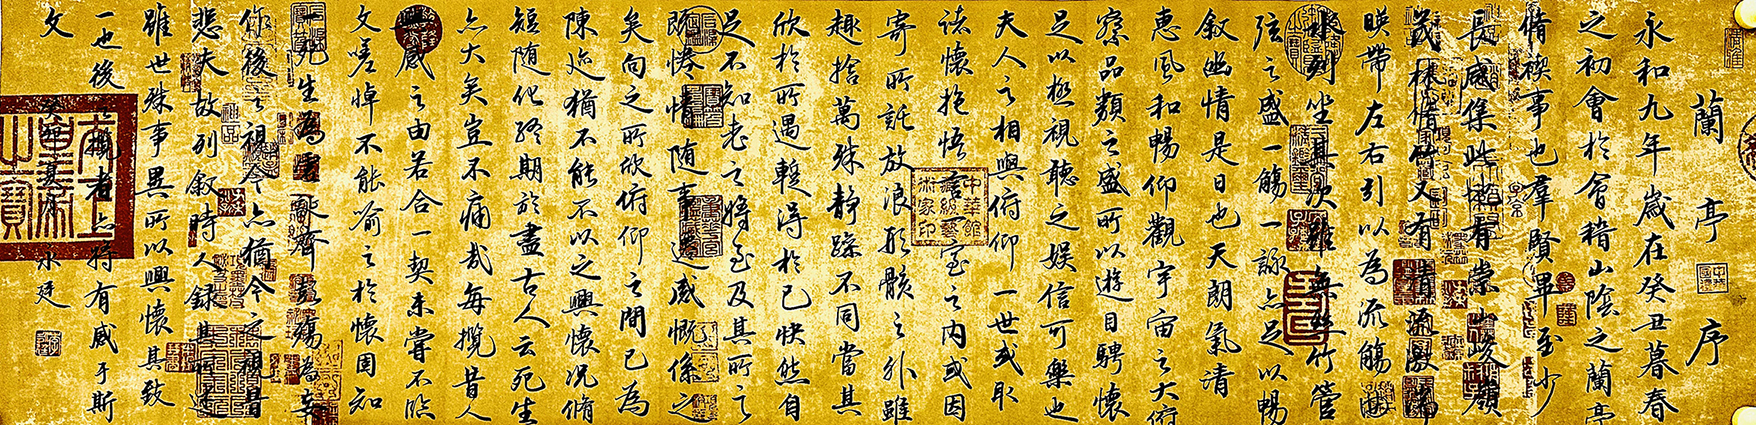 蘭亭序
永和九年歲在癸丑暮春
之初會於會稽山陰之蘭亭
脩禊事也羣賢畢至少
長咸集此地有崇山峻領
茂林脩竹又有清流激湍
暎帶左右引以為流觴曲
水列坐其次雖無絲竹管
弦之盛一觴一詠亦足以暢
敘幽情是日也天朗氣清
惠風和暢仰觀宇宙之大俯
察品類之盛所以遊目騁懷
足以極視聽之娛信可樂也
夫人之相與俯仰一世或取
諸懷抱悟言一室之內或因
寄所託放浪形骸之外雖
趣捨萬殊靜躁不同當其
欣於所遇暫得於己快然自
足不知老之將至及其所之
既惓情随事遷感慨係之
矣向之所欣俯仰之間已為
陳迹猶不能不以之興懷況脩
短随化終期於盡古人云死生
亦大矣豈不痛哉每攬昔人
感之由若合一契未嘗不臨
文嗟悼不能喻之於懷固知
一死生為虛誕齊彭殤為妄
作後之視今亦猶今之視昔
悲夫故列敘時人錄其所述
雖世殊事異所以興懷其致
一也後之攬者亦將有感于斯
文
永廷